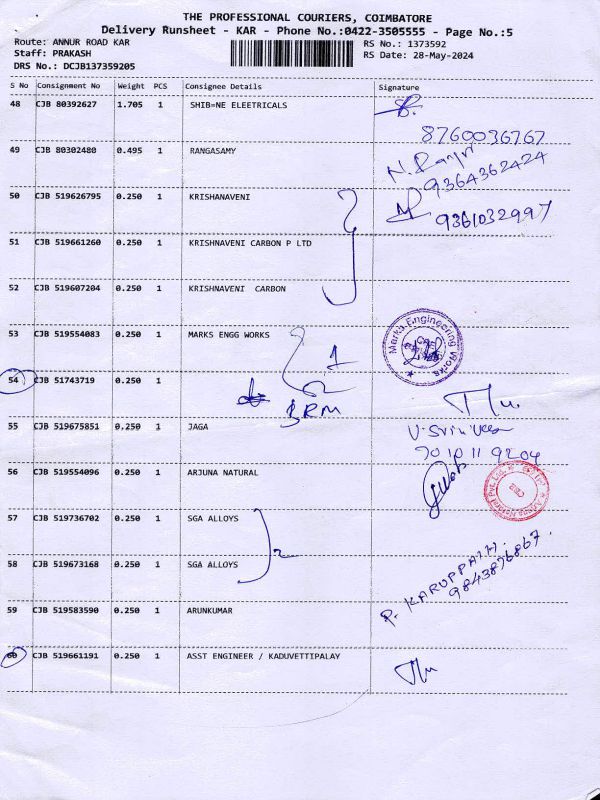 THE PROFESSIONAL COURIERS, COIMBATORE
Delivery Runsheet - KAR - Phone No.:0422-3505555 - Page No.:5
Route: ANNUR ROAD KAR RS No.: 1373592
Staff: PRAKASH RS Date: 28-May-2024
DRS No.: DCJB137359205
S No Consignment No Weight PCS Consignee Details Signature
48 CJB 80392627 1.705 1 SHIB=NE ELEETRICALS
8760036767
49 CJB 80302480 0.495 1 RANGASAMY
9364362424
50 CJB 519626795 0.250 1 KRISHANAVENI
9361032997
51 CJB 519661260 0.250 1 KRISHNAVENI CARBON P LTD
52 CJB 519607204 0.250 1 KRISHNAVENI CARBON
53 CJB 519554083 0.250 1 MARKS ENGG WORKS
Marks Engineering Works
54 CJB 51743719 0.250 1
BRM
55 CJB 519675851 0.250 1 JAGA
56 CJB 519554096 0.250 1 ARJUNA NATURAL
57 CJB 519736702 0.250 1 SGA ALLOYS
2
58 CJB 519673168 0.250 1 SGA ALLOYS
P. KARUPPATH.
9843876867.
59 CJB 519583590 0.250 1 ARUNKUMAR
60 CJB 519661191 0.250 1 ASST ENGINEER / KADUVETTIPALAY